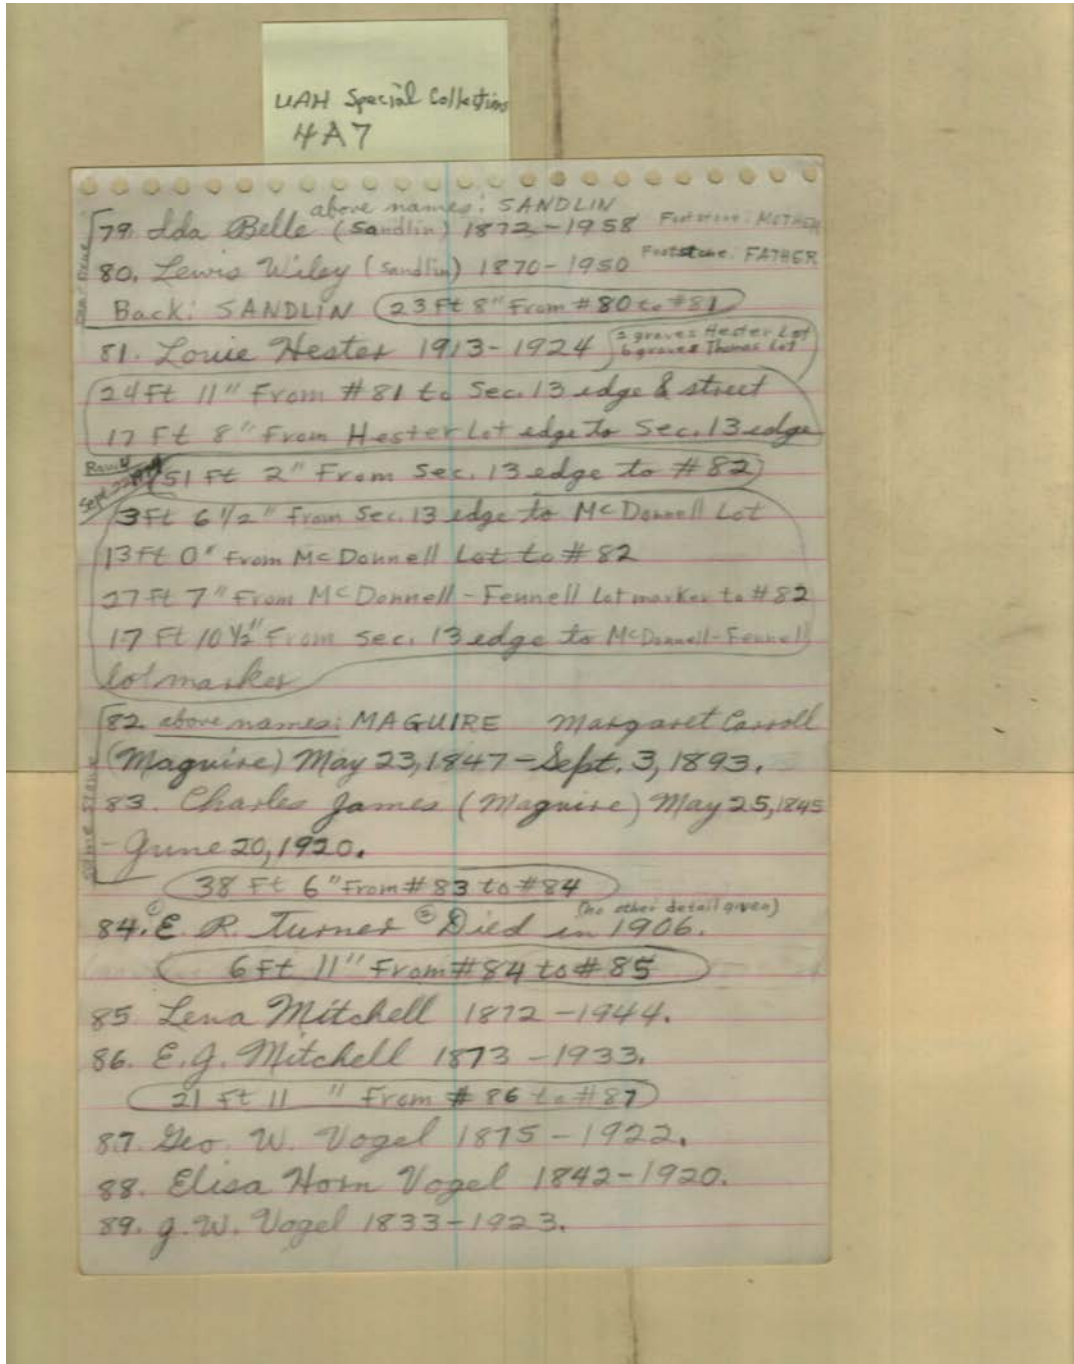 UAH Special Collections
4A7
above names: SANDLIN
79. Ida Belle (Sandlin) 1872-1958 Footstone: MOTHER
80. Lewis Wiley (Sandlin) 1870-1950 Footstone: FATHER
Back: SANDLIN 23 Ft 8" From #80 to #81
81. Louie Hester 1913-1924 2 graves Hester Lot
6 graves Thomas Lot
24 Ft 11" From #81 to Sec. 13 edge & street
17 Ft 8" From Hester Lot edge to Sec. 13 edge
51 Ft 2" From Sec. 13 edge to #82
Sept.
3 Ft 6 1/2" From Sec. 13 edge to McDonnell Lot
13 Ft 0" From McDonnell Lot to #82
27 Ft 7" From McDonnell-Fennell Lot marker to #82
17 Ft 10 1/2" From Sec. 13 edge to McDonnell-Fennell
lot marker
82 above names: MAGUIRE Margaret Carroll
(Maguire) May 23, 1847 - Sept. 3, 1893.
Same Stone
83. Charles James (Maguire) May 25, 1845
- June 20, 1920.
38 Ft 6" From #83 to #84
(no other detail given)
84. ① E. R. Turner ② Died in 1906.
6 Ft 11" From #84 to #85
85 Lena Mitchell 1872-1944.
86. E.G. Mitchell 1873-1933.
21 Ft 11 " From #86 to #87
87. Geo. W. Vogel 1875-1922.
88. Elisa Horn Vogel 1842-1920.
89. G.W. Vogel 1833-1923.